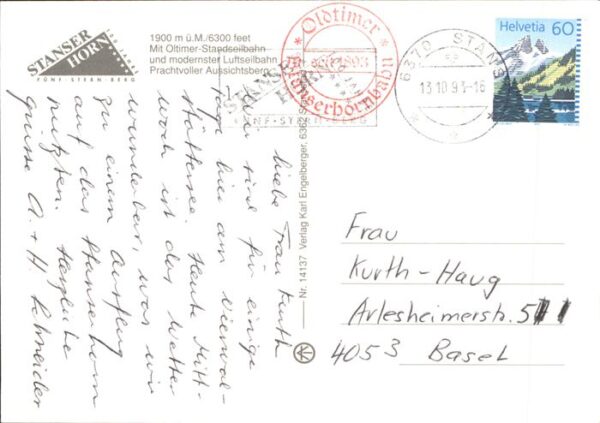 STANSER
HORN
FÜNF-STERN-BERG
1900 m ü.M./6300 feet
Mit Oltimer-Standseilbahn
und modernster Luftseilbahn
Prachtvoller Aussichtsberg
Oldtimer
Stanserhornbahn
FÜNF-STERN-BERG
6370 STANS
13.10.93-16
Helvetia 60
Nr. 14137 Verlag Karl Engelberger, 6362 S
liebe Frau Kurth
wir sind für einige
Tage hier am Vierwal-
stättersee. Heute Mitt-
woch ist das Wetter
wunderbar, was wir
zu einem Ausflug
auf das Stanserhorn
nützten. Herzliche
Grüsse A. + H. Schneider
Frau
Kurth-Haug
Arlesheimerstr. 5
4053 Basel